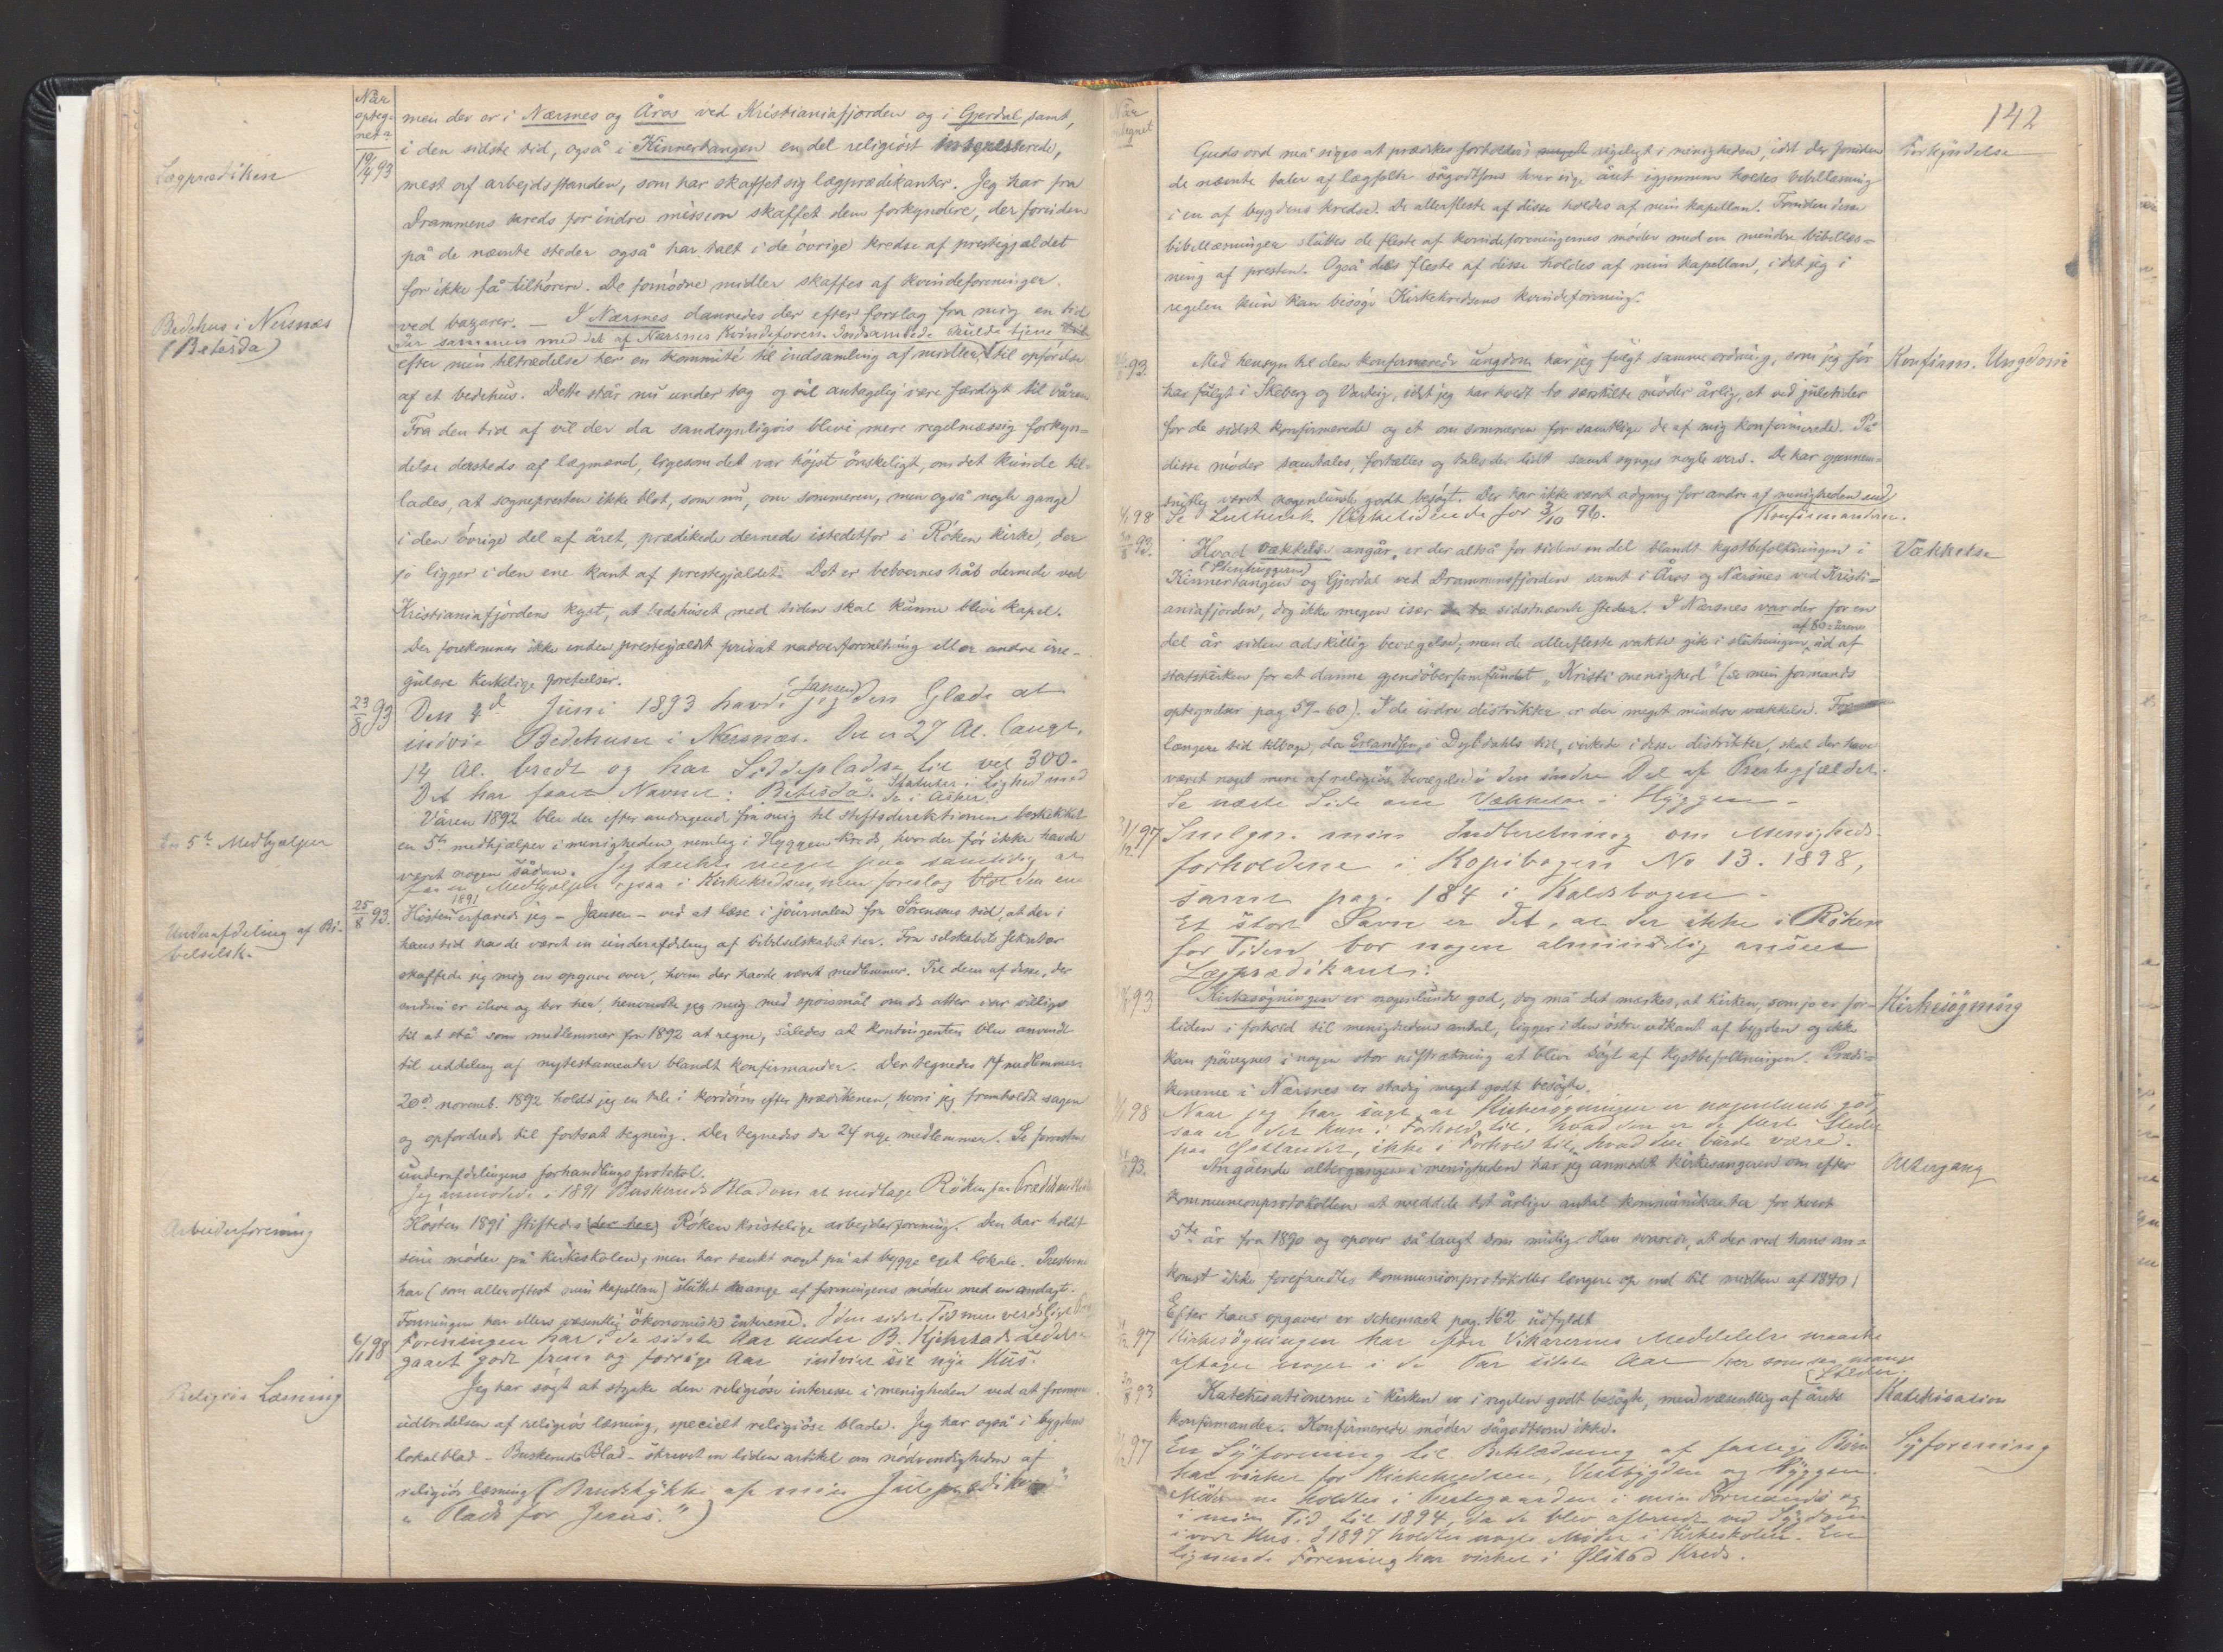 Når
opteg-
net
men der er i Nærsnes og Åros ved Kristianiafjorden og i Gjerdal samt,
19/4 93
i den sidste tid, også i Kinnertangen en del religiöst interesserede,
Lægprædiken
mest af arbejdsstanden, som har skaffet sig lægprædikanter. Jeg har fra
Drammens kreds for indre mission skaffet dem forkyndere, der foruden
på de nævnte steder også har talt i de övrige kredse af prestegjældet
for ikke få tilhörere. De fornödne midler skaffes af kvindeforeninger
Bedehus i Nersnæs
(Betesda)
ved bazarer. — I Nærsnes dannedes der efter forslag fra mig en tid
der sammen med det af Nærsnes Kvindeforen. indsamlede skulde tjene
efter min tiltrædelse her en kommité til indsamling af midler til opförelse
af et bedehus. Dette står nu under tag og vil antagelig være færdigt til våren.
Fra den tid af vil der da sandsynligvis blive mere regelmæssig forkyn-
delse dersteds af lægmænd, ligesom det var höjst önskeligt, om det kunde til-
lades, at sognepresten ikke blot, som nu, om sommeren, men også nogle gange
i den övrige del af året, prædikede dernede istedetfor i Röken kirke, der
jo ligger i den ene kant af prestegjældet. Det er beboernes håb dernede ved
Kristianiafjordens kyst, at bedehuset med tiden skal kunne blive kapel.
Der forekommer ikke inden prestegjældet privat nadverforvaltning eller andre irre-
gulære kirkelige foreteelser.
23/8 93
Den 4d Juni 1893 havde jeg (Jansen) den Glæde at
indvie Bedehuset i Nersnæs. Det er 27 Al. langt,
14 Al. bredt og har Siddepladse til vel 300.
Det har faaet Navnet: "Betesda". Statuter i Lighed med
de i Asker.
En 5te Medhjælper
Våren 1892 blev der efter andragende fra mig til stiftsdirektionen beskikket
en 5te medhjælper i menigheden, nemlig i Hyggen kreds, hvor der för ikke havde
været nogen sådan. Jeg tænkte meget paa samtidig at
faa en Medhjælper ogsaa i Kirkekredsen, men foreslog blot den ene
25/8 93.
Underafdeling af Bi-
belselsk.
Hösten 1891 erfarede jeg - Jansen - ved at læse i journalen fra Sörensens tid, at der i
hans tid havde været en underafdeling af bibelselskabet her. Fra selskabets sekretær
skaffede jeg mig en opgave over, hvem der havde været medlemmer. Til dem af disse, der
endnu er ilive og bor her, henvendte jeg mig med spörsmål om de atter var villige
til at stå som medlemmer fra 1892 at regne, således at kontingenten blev anvendt
til uddeling af nytestamenter blandt konfirmander. Der tegnedes 14 medlemmer.
20d novemb. 1892 holdt jeg en tale i kordören efter prædikenen, hvori jeg fremholdt sagen
og opfordrede til fortsat tegning. Der tegnedes da 24 nye medlemmer. Se forresten
underafdelingens forhandlingsprotokol.
Jeg anmodede i 1891 Buskeruds Blad om at medtage Röken paa
Arbeiderforening
Hösten 1891 stiftedes der her Röken kristelige arbejderforening. Den har holdt
sine möder på kirkeskolen, men har tænkt noget på at bygge eget lokale. Presterne
har (som alleroftest min kapellan) sluttet mange af foreningens möder med en andagt.
Foreningen har ellers væsentlig ökonomisk interesse. I den sidste Tid mere verdsligt
6/1 98
Foreningen har i de sidste Aar under B. Kjekstads Ledelse
gaaet godt frem og forrige Aar indviet sit nye Hus.
Religiøs Læsning
Jeg har sögt at styrke den religiöse interesse i menigheden ved at fremme
udbredelsen af religiös læsning, specielt religiöse blade. Jeg har også i bygdens
lokalblad - Buskeruds Blad - skrevet en liden artikel om nödvendigheden af
religiös læsning (Brudstykke af min Juleprædiken
"Plads for Jesus.")
142
Når
optegnet
Forkyndelse
Guds ord må siges at prædikes forholdsvis meget rigeligt i menigheden, idet der foruden
de nævnte taler af lægfolk sågodtsom hver uge året igjennem holdes bibellæsning
i en af bygdens kredse. De allerfleste af disse holdes af min kapellan. Foruden disse
bibellæsninger sluttes de fleste af kvindeforeningernes möder med en mindre bibellæs-
ning af presten. Også de fleste af disse holdes af min kapellan, idet jeg i
regelen kun kan besöge Kirkekredsens kvindeforening.
93.
Konfirm. Ungdom
Med hensyn til den konfirmerede ungdom har jeg fulgt samme ordning, som jeg för
har fulgt i Skiberg og Varteig, idet jeg har holdt to særskilte möder årlig, et ved juletider
for de sidst konfirmerede og et om sommeren for samtlige de af mig konfirmerede. På
disse möder samtales, fortælles og tales der lidt samt synges nogle vers. De har gjennem-
snitlig været nogenlunde godt besögt. Der har ikke været adgang for andre af menigheden end
konfirmanderne.
1/1 98
Se Luthersk Kirketidende for 3/10 96.
30/8 93.
Vækkelse
Hvad vækkelse angår, er der altså for tiden en del blandt kystbefolkningen i
(Stenhuggerne)
Kinnertangen og Gjerdal ved Drammensfjorden samt i Åros og Nærsnes ved Kristi-
aniafjorden, dog ikke megen især de to sidstnævnte steder. I Nærsnes var der for en
af 80-årene
del år siden adskillig bevægelse, men de allerfleste vakte gik i slutningen ud af
statskirken for at danne gjendöbersamfundet "Kristi menighed" (se min formands
optegnelser pag 59-60). I de indre distrikter er der meget mindre vækkelse. For
længere tid tilbage, da Erlandsen, i Dybdahls tid, virkede i disse distrikter, skal der have
været noget mere af religiös bevægelse i den indre Del af Prestegjældet.
Se næste Side om Vækkelse i Hyggen —
31/12 97
Smlgn. min Indberetning om Menigheds-
forholdene i Kopibogen No 13. 1898,
samt pag. 184 i Kaldsbogen —
Et stort Savn er det, at der ikke i Röken
for Tiden bor nogen almindelig anseet
Lægprædikant.
93
Kirkesögning
Kirkesögningen er nogenlunde god, dog må det mærkes, at kirken, som jo er for-
liden i forhold til menighedens antal, ligger i den östre udkant af bygden og ikke
kan påregnes i nogen stor udstrækning at blive sögt af kystbefolkningen. Prædi-
kenerne i Nærsnes er stadig meget godt besögte.
1/1 98
Naar jeg har sagt, at Kirkesögningen er nogenlunde god,
saa er det kun i Forhold til, hvad den er de fleste Steder
paa Östlandet, ikke i Forhold til, hvad den burde være.
93.
Altergang
Angående altergangen i menigheden har jeg anmodet kirkesangeren om efter
kommunionprotokollen at meddele det årlige antal kommunikanter for hvert
5te år fra 1890 og opover så langt som mulig. Han svarede, at der ved hans an-
komst ikke forefandtes kommunionprotokoller længere op end til midten af 1840.
Efter hans opgaver er schemaet pag. 162 udfyldt
97
Kirkesögningen har efter Vikarernes Meddelelse maaske
aftaget noget i de Par sidste Aar her som saa mange
Steder.
30/8 93
Katekisation
Katekisationerne i kirken er i regelen godt besögte, men væsentlig af årets
konfirmander. Konfirmerede möder sågodtsom ikke.
97
Syforening
En Syforening til Beklædning af fattige Börn
har virket for Kirkekredsen, Vestbygden og Hyggen.
Möderne holdtes i Prestegaarden i min Formands og
i min Tid til 1894, da de blev afbrudt ved Sygdom
i vort Hus. I 1897 holdtes nogle Möder i Kirkeskolen. En
lignende Forening har virket i Ølstad Kreds.